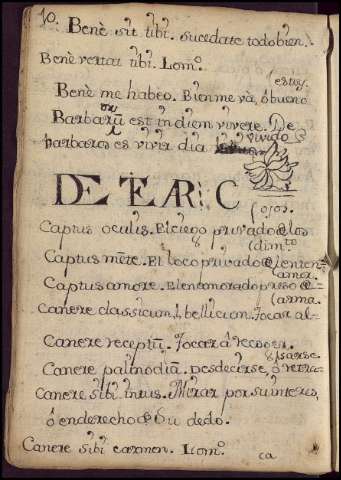 10. Benè sit tibi. sucedate todo bien.
Benè vertat tibi. Lo m.º
(estoy.
Benè me habeo. Bien me và, ò bueno
Barbarorũ est in diem vivere. De
barbaros es vivir dia vivido
DE LITERA C
(ojos.
Captus oculis. El ciego privado de los
(dim.to
Captus mẽte. El loco privado de enten=
(amor.
Captus amore. El enamorado preso de=
(arma.
Canere classicum, l. bellicum. Tocar al=
Canere receptũ. Tocar à recojer.
tarse.
Canere palinodiã. Desdecirse, ò retrac=
Canere sibi intus. Mirar por su interes,
ò en derecho de su dedo.
Canere sibi carmen. L. m.º
ca